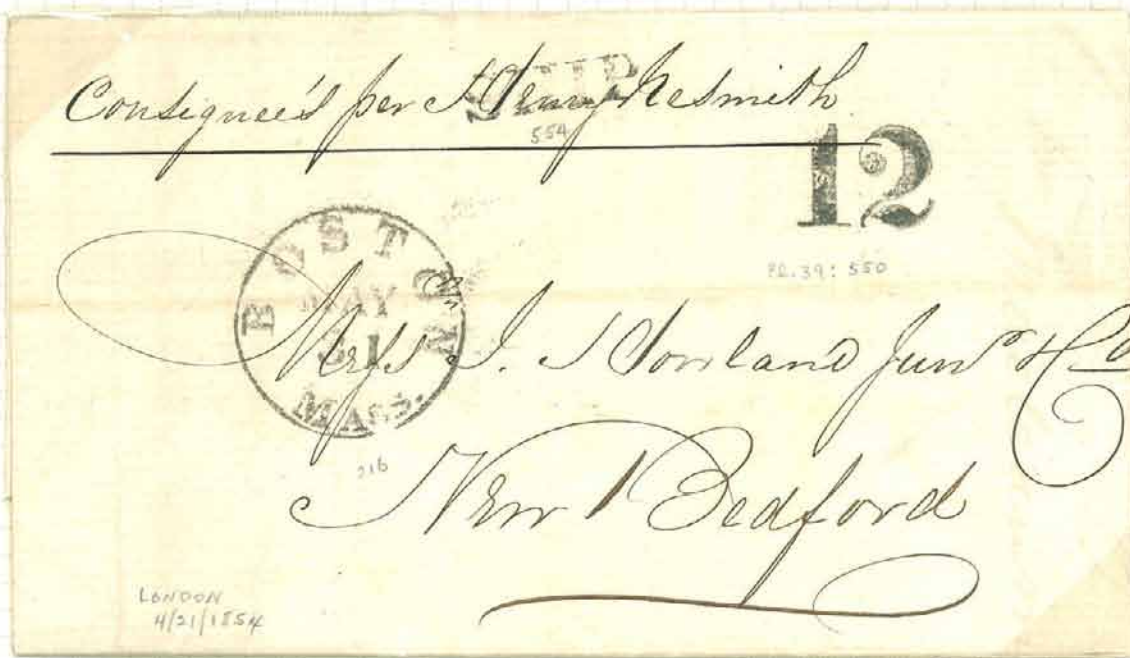 Consignee's per Henry Nesmith
SHIP
554
12
PL.39: 550
BOSTON
MAY
31
MASS.
Mess J. Howland Junr & Co
216
New Bedford
LONDON
4/21/1854